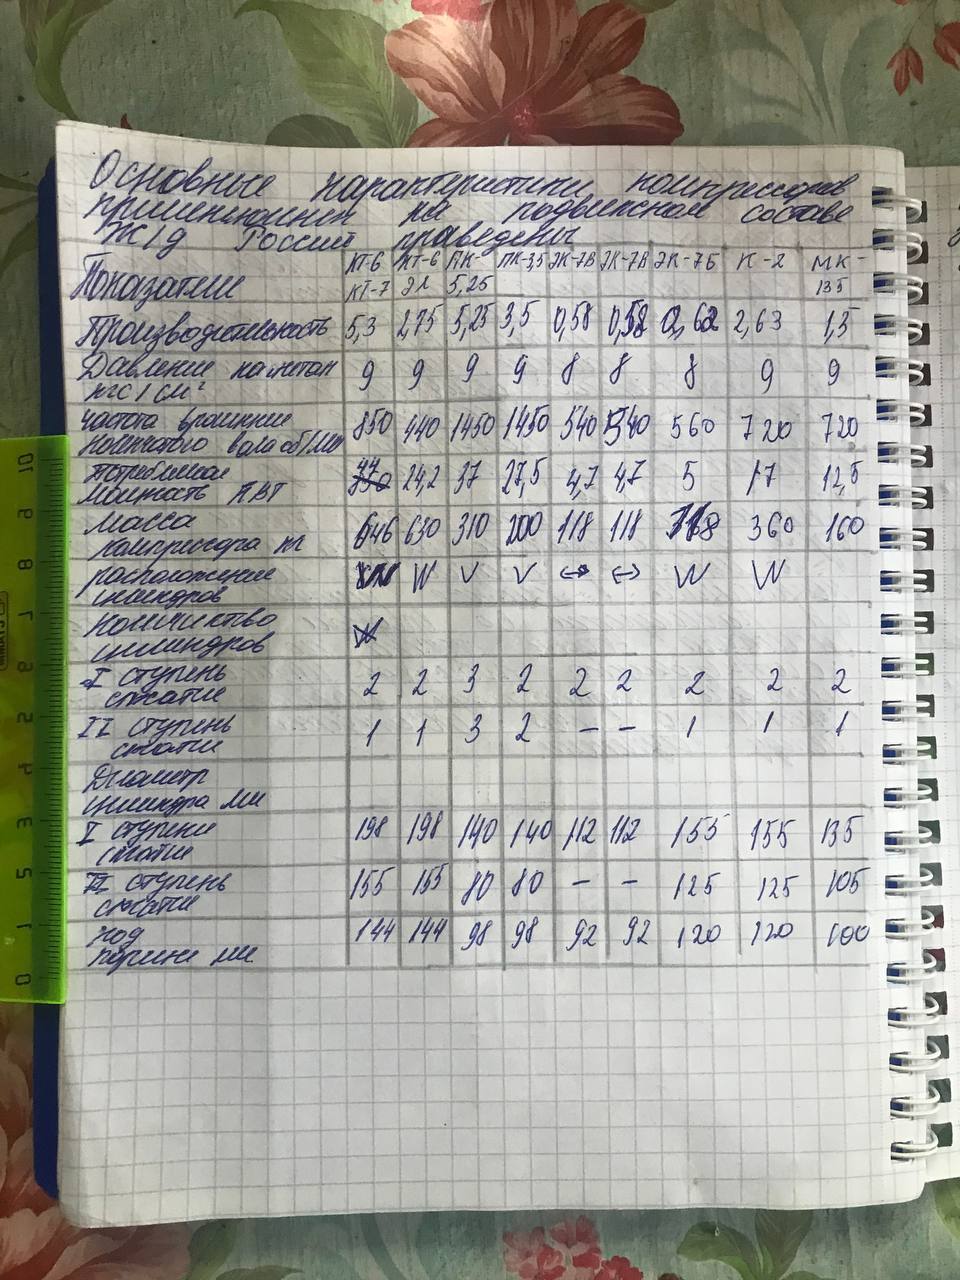 Основные характеристики компрессоров
применяемых на подвижном составе
Ж/д России приведены
Показатели КТ-6 КТ-7 КТ-6 Эл ПК-5,25 ПК-3,5 ЭК-7В ЭК-7В ЭК-7Б К-2 МК-135
Производительность 5,3 2,75 5,25 3,5 0,58 0,58 0,62 2,63 1,5
Давление нагнетан 9 9 9 9 8 8 8 9 9
кгс/см²
частота вращения 850 440 1450 1450 540 540 560 720 720
коленчатого вала об/мин
Потребляемая 44 24,2 37 27,5 4,7 4,7 5 17 12,5
мощность кВт
Масса 646 630 310 200 118 118 360 160
компрессора кг
расположение W W V V ↔ ↔ W W
цилиндров
Количество
цилиндров
I ступень 2 2 3 2 2 2 2 2 2
сжатие
II ступень 1 1 3 2 – – 1 1 1
сжатие
Диаметр
цилиндра мм
I ступени 198 198 140 140 112 112 155 155 135
сжатие
II ступень 155 155 80 80 – – 125 125 105
сжатие
ход 144 144 98 98 92 92 120 120 100
поршня мм
10 9 8 7 6 5 4 3 2 1 0